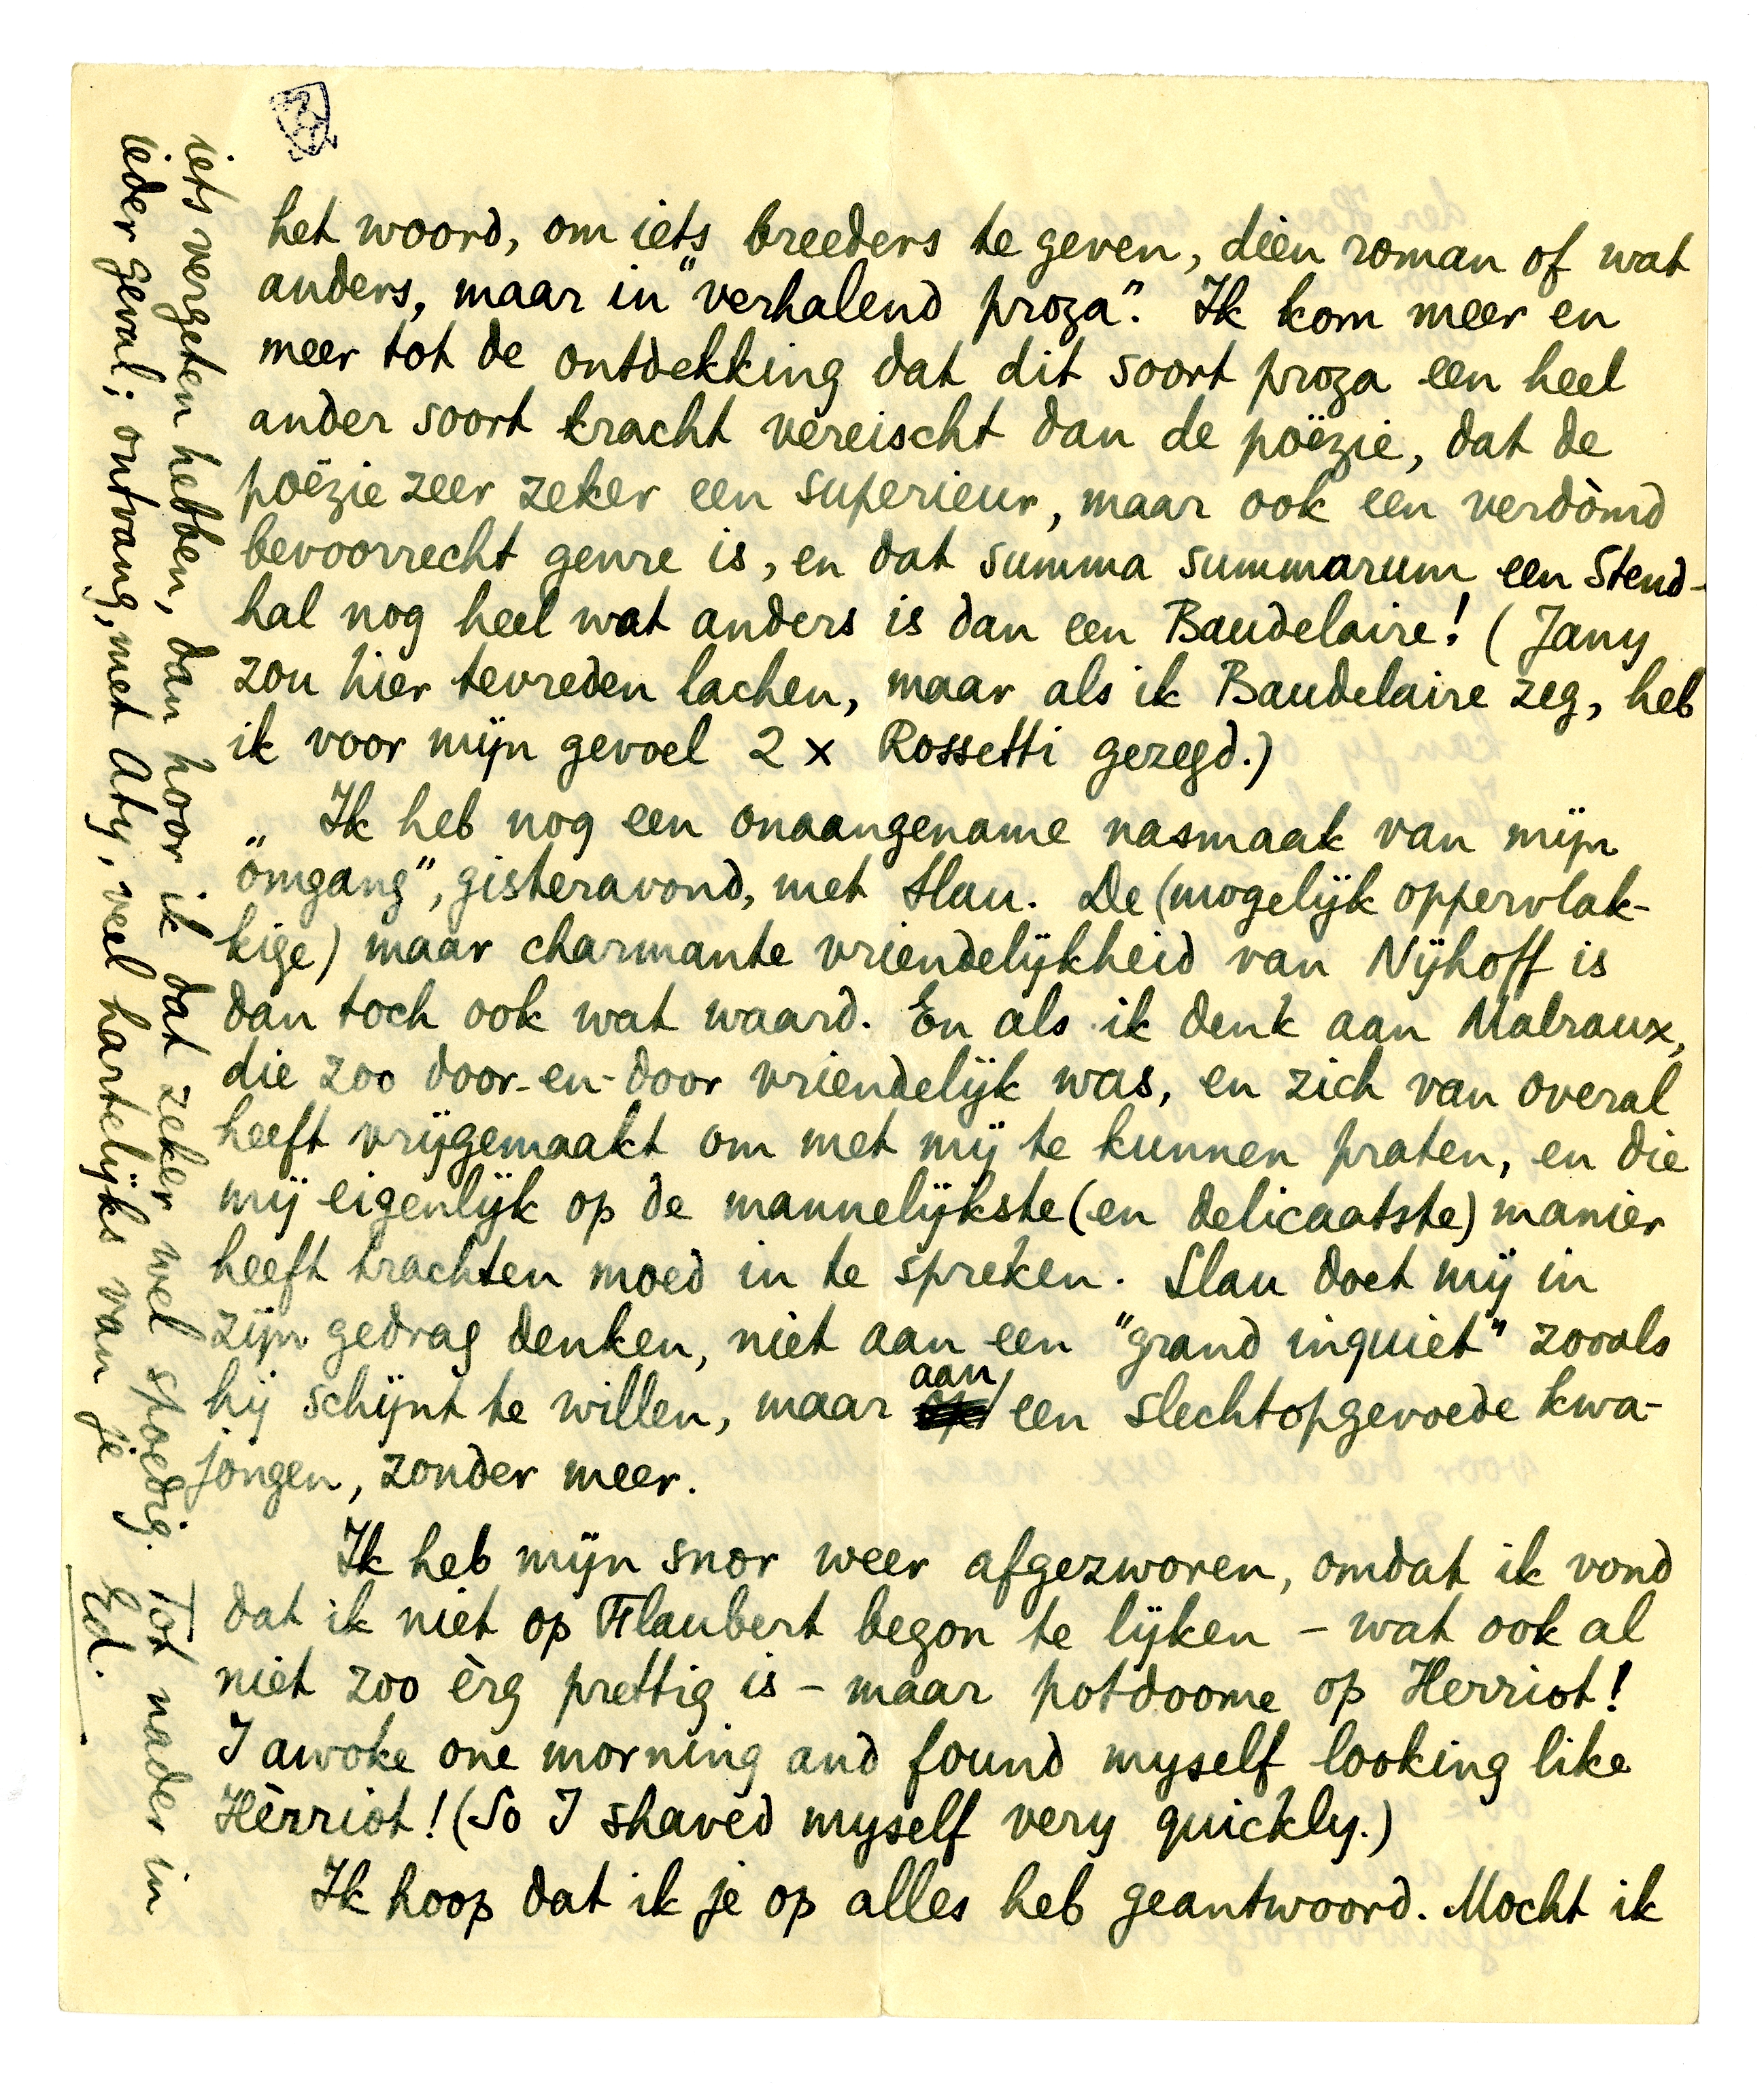 het woord, om iets breeders te geven, dien roman of wat
anders, maar in "verhalend proza". Ik kom meer en
meer tot de ontdekking dat dit soort proza een heel
ander soort kracht vereischt dan de poëzie, dat de
poëzie zeer zeker een superieur, maar ook een verdòmd
bevoorrecht genre is, en dat summa summarum een Stend-
hal nog heel wat anders is dan een Baudelaire! (Jany
zou hier tevreden lachen, maar als ik Baudelaire zeg, heb
ik voor mijn gevoel 2 x Rossetti gezegd.)
Ik heb nog een onaangename nasmaak van mijn
„omgang", gisteravond, met Slau. De (mogelijk oppervlak-
kige) maar charmante vriendelijkheid van Nijhoff is
dan toch ook wat waard. En als ik denk aan Malraux,
die zoo door-en-door vriendelijk was, en zich van overal
heeft vrijgemaakt om met mij te kunnen praten, en die
mij eigenlijk op de mannelijkste (en delicaatste) manier
heeft trachten moed in te spreken. Slau doet mij in
zijn gedrag denken, niet aan een "grand inquiet" zooals
hij schijnt te willen, maar aan een slechtopgevoede kwa-
jongen, zonder meer.
Ik heb mijn snor weer afgezworen, omdat ik vond
dat ik niet op Flaubert begon te lijken – wat ook al
niet zoo èrg prettig is – maar potdoome op Herriot!
I awoke one morning and found myself looking like
Hèrriot! (So I shaved myself very quickly.)
Ik hoop dat ik je op alles heb geantwoord. Mocht ik
iets vergeten hebben, dan hoor ik dat zeker wel spoedig. Tot nader in
ieder geval; ontvang, met Aty, veel hartelijks van je
Ed.